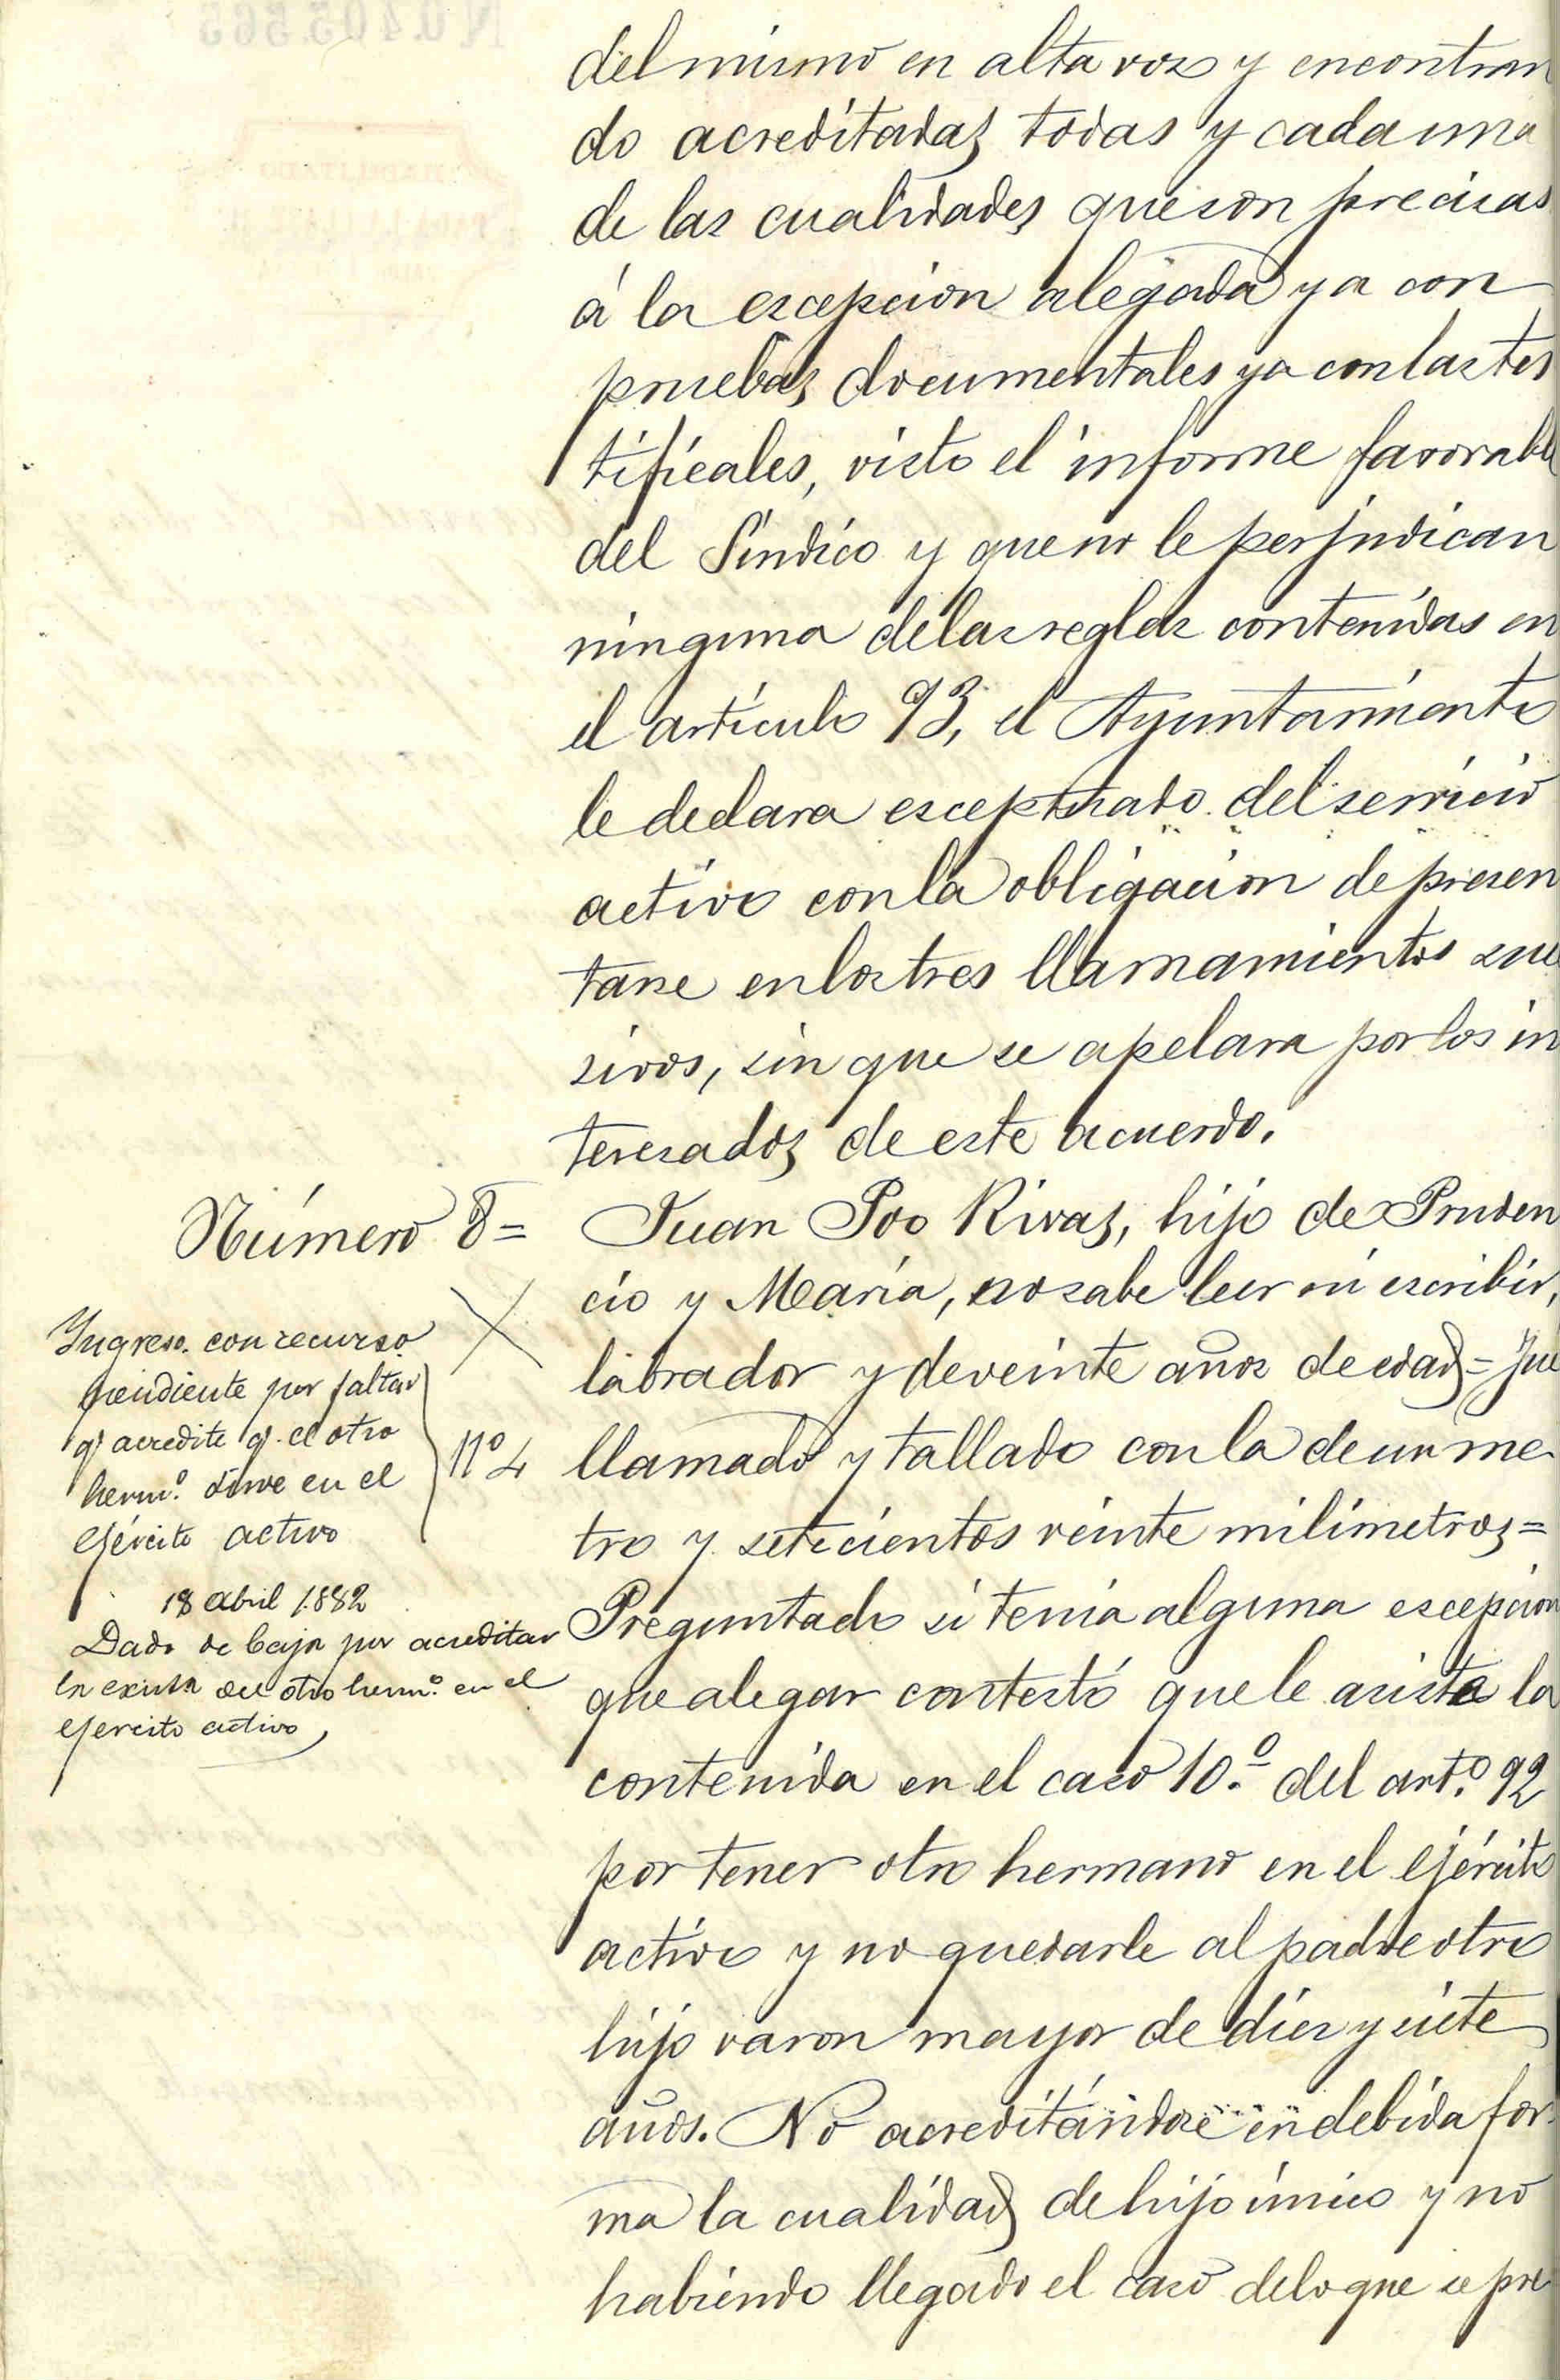 del mismo en alta voz y encontran
do acreditadas todas y cada una
de las cualidades que son precisas
á la escepcion alegada ya con
pruebas documentales ya con las tes
tificales, visto el informe favorable
del Síndico y que no le perjudican
ninguna de las reglas contenidas en
el artículo 93, el Ayuntamiento
le declara esceptuado del servicio
activo con la obligacion de presen
tarse en los tres llamamientos suce
sivos, sin que se apelara por los in
teresados de este acuerdo.
Número 8=
Juan Poo Rivas, hijo de Pruden
cio y María, no sabe leer ni escribir,
labrador y de veinte años de edad= Fué
llamado y tallado con la de un me
tro y setecientos veinte milímetros=
Preguntado si tenia alguna escepcion
que alegar contestó que le asiste la
contenida en el caso 10.º del art.º 92
por tener otro hermano en el ejército
activo y no quedarle al padre otro
hijo varon mayor de diez y siete
años. No acreditándose en debida for
ma la cualidad de hijo único y no
habiendo llegado el caso de lo que se pre
Ingreso con recurso
pendiente por faltar
q. acredite q. el otro
herm.º sirve en el
ejército activo
Nº 4
18 Abril 1882
Dado de baja por acreditar
la exista del otro herm.º en el
ejercito activo